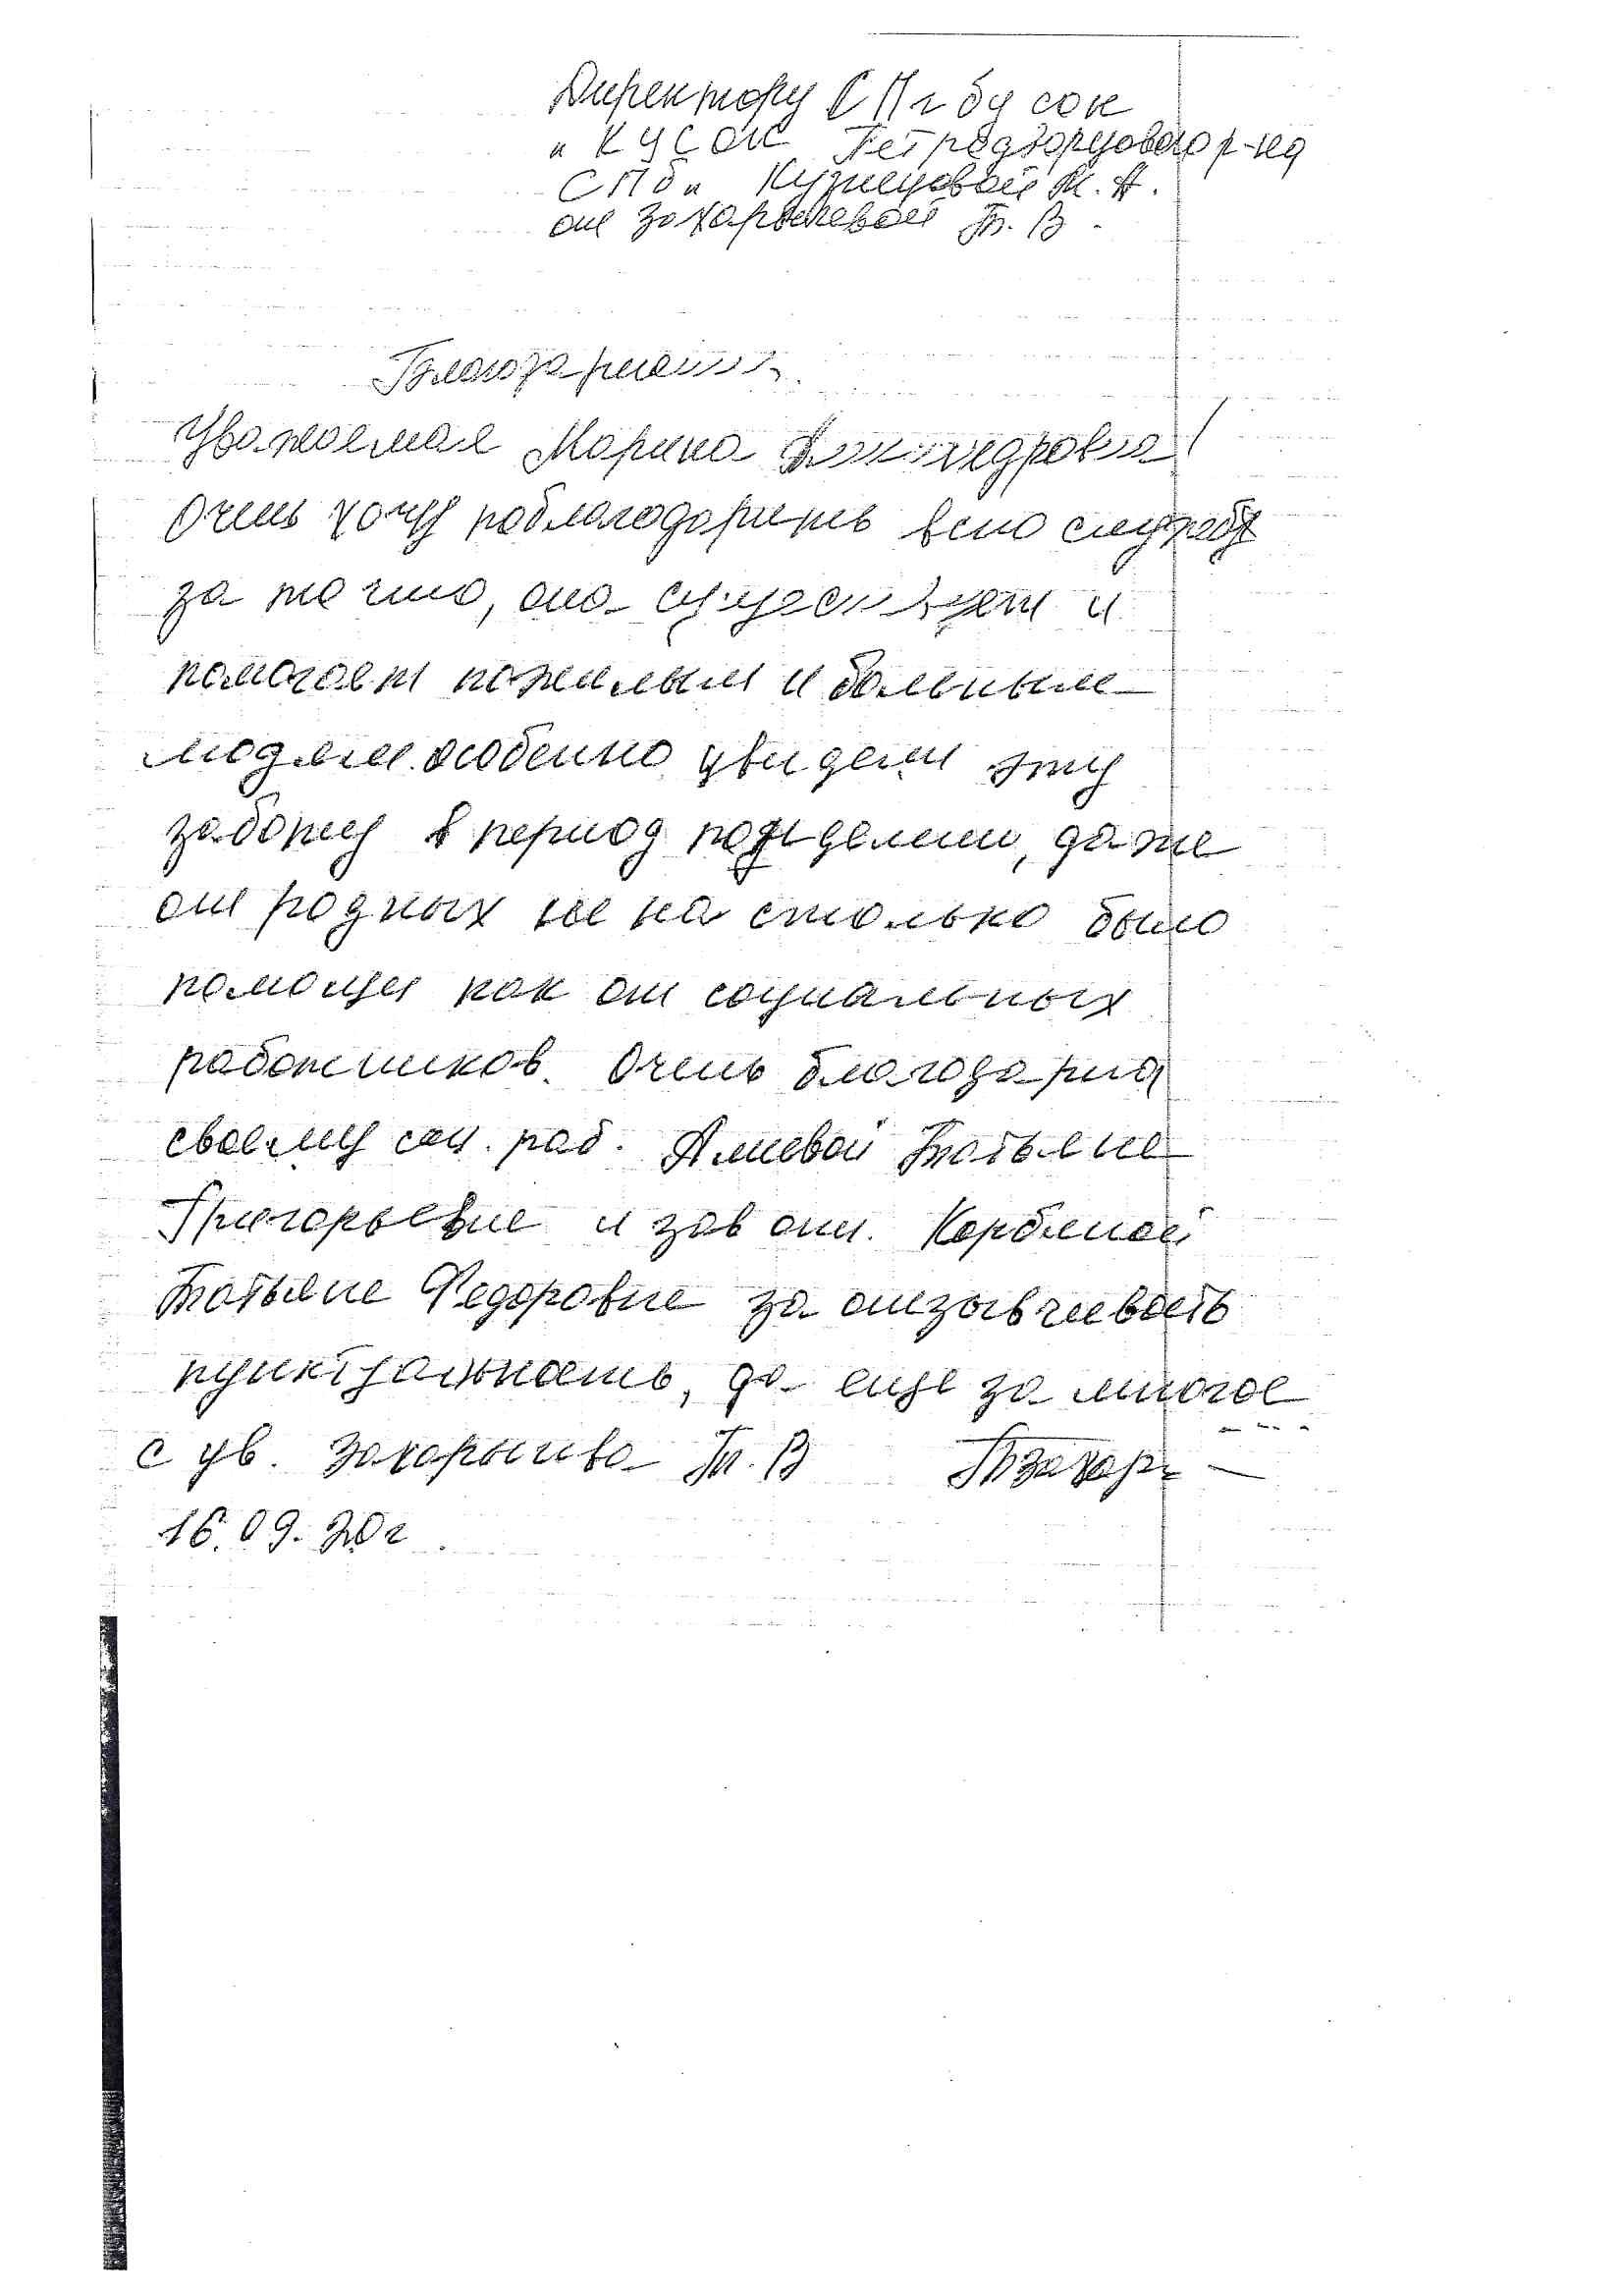 Директору СПг бу сон
"КЦСОН Петродворцового р-на
СПб" Кузнецовой М. А.
от Захарычевой Т. В.
Благодарность.
Уважаемая Марина Александровна!
Очень хочу поблагодарить всю службу
за то что, она существует и
помогает пожилым и больным
людям. особенно увидели эту
заботу в период пандемии, даже
от родных не на столько было
помощи как от социальных
работников. Очень благодарна
своему соц. раб. Алиевой Татьяне
Григорьевне и зав отд. Корбиной
Татьяне Федоровне за отзывчивость
пунктуальность, да еще за многое
с ув. Т. В
16.09.20г